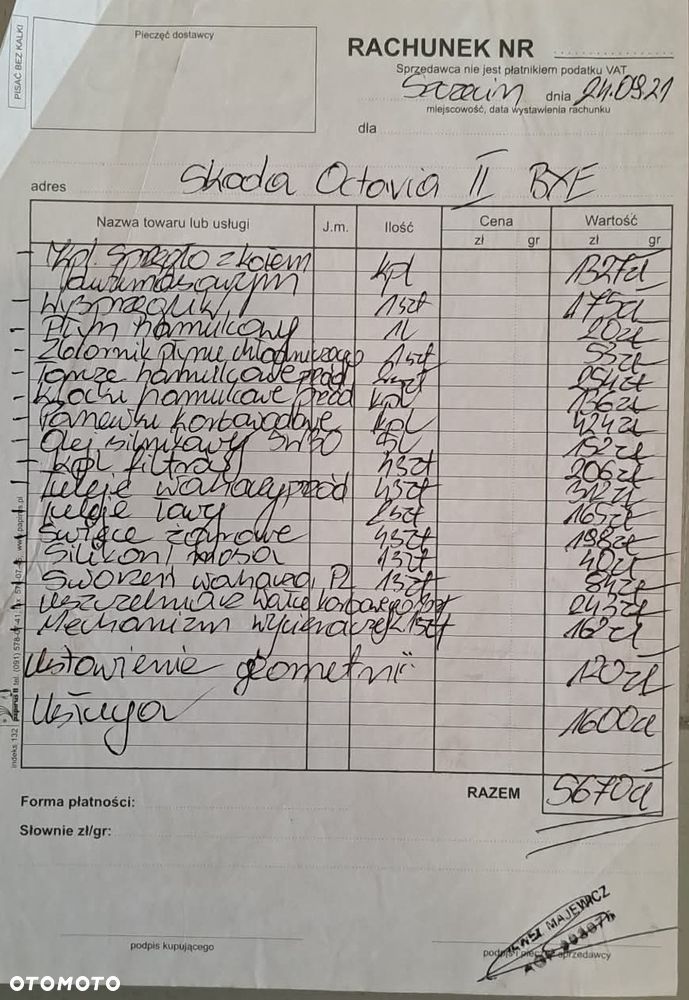 PISAĆ BEZ KALKI
Pieczęć dostawcy
RACHUNEK NR
Sprzedawca nie jest płatnikiem podatku VAT
Szczecin dnia 24.09.21
miejscowość, data wystawienia rachunku
dla
adres Skoda Octavia II BXE
Nazwa towaru lub usługi J.m. Ilość Cena Wartość
zł gr zł gr
Kpl. Sprzęgło z kołem
dwumasowym kpl 1327zł
Wysprzęglik 1szt 175zł
Płyn hamulcowy 1L 20zł
Zbiornik płynu chłodniczego 1szt 53zł
Tarcze hamulcowe przód 2szt 254zł
Klocki hamulcowe przód kpl 136zł
Panewki korbowodowe kpl 424zł
Olej silnikowy 5W30 5L 152zł
Kpl. filtrów 4szt 206zł
Tuleje wahaczy przód 4szt 312zł
Tuleje ławy 2szt 165zł
Świece żarowe 4szt 198zł
Silikon 1szt 40zł
Sworzeń wahacza PL 1szt 84zł
Uszczelniacz wału korbowego 243zł
Mechanizm wycieraczek 1szt 162zł
Ustawienie geometrii 120zł
Usługa 1600zł
RAZEM 5670zł
Forma płatności:
Słownie zł/gr:
podpis kupującego
MAJEWICZ
sprzedawcy
OTOMOTO